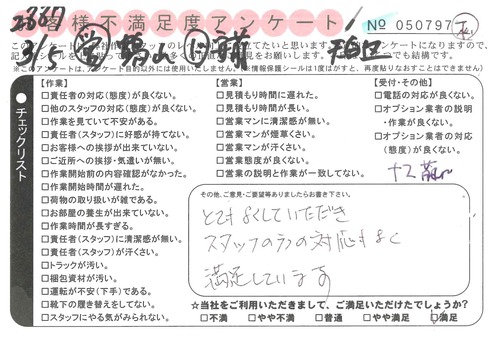 お客様不満足度アンケート
№ 050797
【作業】
□責任者の対応(態度)が良くない。
□他のスタッフの対応(態度)が良くない。
□作業を見ていて不安がある。
□責任者(スタッフ)に好感が持てない。
□お客様への挨拶が出来ていない。
□ご近所への挨拶・気遣いが無い。
□作業開始前の内容確認がなかった。
□作業開始時間が遅れた。
□荷物の取り扱いが雑である。
□お部屋の養生が出来ていない。
□作業時間が長すぎる。
□責任者(スタッフ)に清潔感が無い。
□責任者(スタッフ)が汗くさい。
□トラックが汚い。
□梱包資材が汚い。
□運転が不安(下手)である。
□靴下の履き替えをしてない。
□スタッフにやる気がみられない。
チェックリスト
【営業】
□見積もり時間に遅れた。
□見積もり時間が長い。
□営業マンに清潔感が無い。
□営業マンが煙草くさい。
□営業マンが汗くさい。
□営業態度が良くない。
□営業の説明と作業が一致してない。
【受付・その他】
□電話の対応が良くない。
□オプション業者の説明
・作業が良くない。
□オプション業者の対応
(態度)が良くない。
その他、ご意見・ご要望等ありましたらお書き下さい。
とてもよくしていただき
スタッフの方の対応もよく
満足しています
☆当社をご利用いただきまして、ご満足いただけたでしょうか?
□不満 □やや不満 □普通 □やや満足 □満足